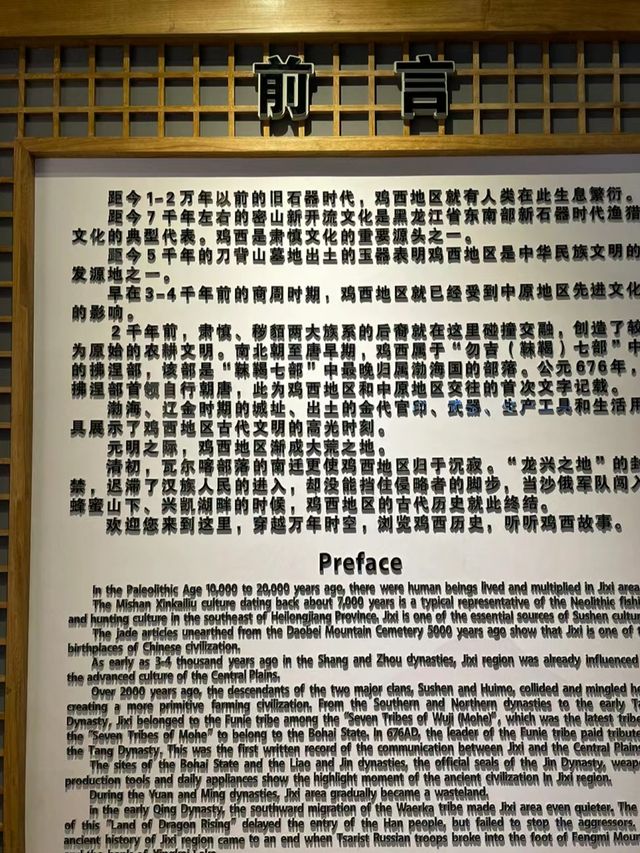 前言
距今1-2万年以前的旧石器时代，鸡西地区就有人类在此生息繁衍。
距今7千年左右的密山新开流文化是黑龙江省东南部新石器时代渔猎
文化的典型代表。鸡西是肃慎文化的重要源头之一。
距今5千年的刀背山墓地出土的玉器表明鸡西地区是中华民族文明的
发源地之一。
早在3-4千年前的商周时期，鸡西地区就已经受到中原地区先进文化
的影响。
2千年前，肃慎、秽貊两大族系的后裔就在这里碰撞交融，创造了较
为原始的农耕文明。南北朝至唐早期，鸡西属于“勿吉（靺鞨）七部”中
的拂涅部，该部是“靺鞨七部”中最晚归属渤海国的部落。公元676年，
拂涅部首领自行朝唐，此为鸡西地区和中原地区交往的首次文字记载。
渤海、辽金时期的城址、出土的金代官印、武器、生产工具和生活用
具展示了鸡西地区古代文明的高光时刻。
元明之际，鸡西地区渐成大荒之地。
清初，瓦尔喀部落的南迁更使鸡西地区归于沉寂。“龙兴之地”的封
禁，迟滞了汉族人民的进入，却没能挡住侵略者的脚步，当沙俄军队闯入
蜂蜜山下、兴凯湖畔的时候，鸡西地区的古代历史就此终结。
欢迎您来到这里，穿越万年时空，浏览鸡西历史，听听鸡西故事。
Preface
In the Paleolithic Age 10,000 to 20,000 years ago, there were human beings lived and multiplied in Jixi area
The Mishan Xinkailiu culture dating back about 7,000 years is a typical representative of the Neolithic fishi
and hunting culture in the southeast of Heilongjiang Province. Jixi is one of the essential sources of Sushen cultur
The jade articles unearthed from the Daobei Mountain Cemetery 5000 years ago show that Jixi is one of t
birthplaces of Chinese civilization.
As early as 3-4 thousand years ago in the Shang and Zhou dynasties, Jixi region was already influenced
the advanced culture of the Central Plains.
Over 2000 years ago, the descendants of the two major clans, Sushen and Huimo, collided and mingled he
creating a more primitive farming civilization. From the Southern and Northern dynasties to the early Ta
Dynasty, Jixi belonged to the Funie tribe among the "Seven Tribes of Wuji (Mohe)", which was the latest tribe
the "Seven Tribes of Mohe" to belong to the Bohai State. In 676AD, the leader of the Funie tribe paid tribute
the Tang Dynasty. This was the first written record of the communication between Jixi and the Central Plains
The sites of the Bohai State and the Liao and Jin dynasties, the official seals of the Jin Dynasty, weapo
production tools and daily appliances show the highlight moment of the ancient civilization in Jixi region.
During the Yuan and Ming dynasties, Jixi area gradually became a wasteland.
In the early Qing Dynasty, the southward migration of the Waerka tribe made Jixi area even quieter. The
of this "Land of Dragon Rising" delayed the entry of the Han people, but failed to stop the aggressors.
ancient history of Jixi region came to an end when Tsarist Russian troops broke into the foot of Fengmi Moun